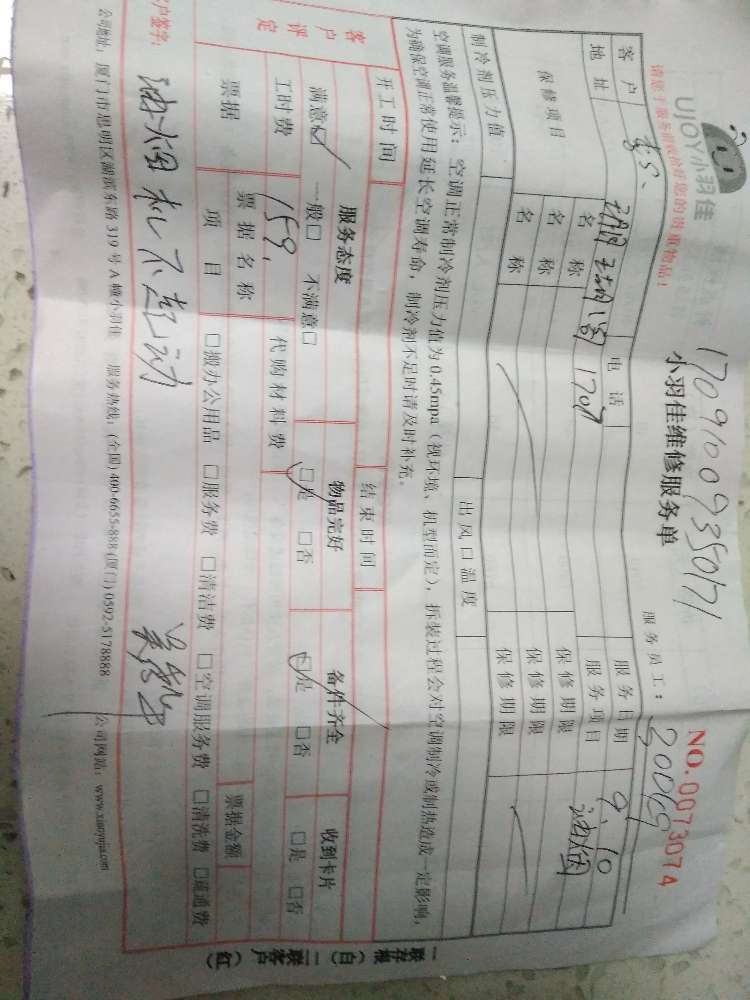 UJOY小羽佳
17091009350171
NO.0073074
小羽佳维修服务单
服务员工：30069
请您于服务前收拾好您的贵重物品！
客户
电话
服务日期 9.10
地址 1707
服务项目 油烟
保修项目
名称 保修期限
名称 保修期限
名称 保修期限
制冷剂压力值 出风口温度
空调服务温馨提示：空调正常制冷剂压力值为0.45mpa（视环境、机型而定），拆装过程会对空调制冷或制热造成一定影响，
为确保空调正常使用延长空调寿命，制冷剂不足时请及时补充。
开工时间 结束时间
客户评定
服务态度 物品完好 备件齐全 收到卡片
满意☑ 一般□ 不满意□ □是 □否 □是 □否 □是 □否
工时费 159. 代购材料费
票据 票据名称 票据金额
项目 □搬办公用品 □服务费 □清洁费 □空调服务费 □清洗费 □疏通费
油烟机不起动
客户签字：
公司地址：厦门市思明区湖滨东路319号A幢小羽佳 服务热线：(全国) 400-6655-888 (厦门) 0592-5178888 公司网站：www.xiaoyujia.com
一联存根（白） 二联客户（红）